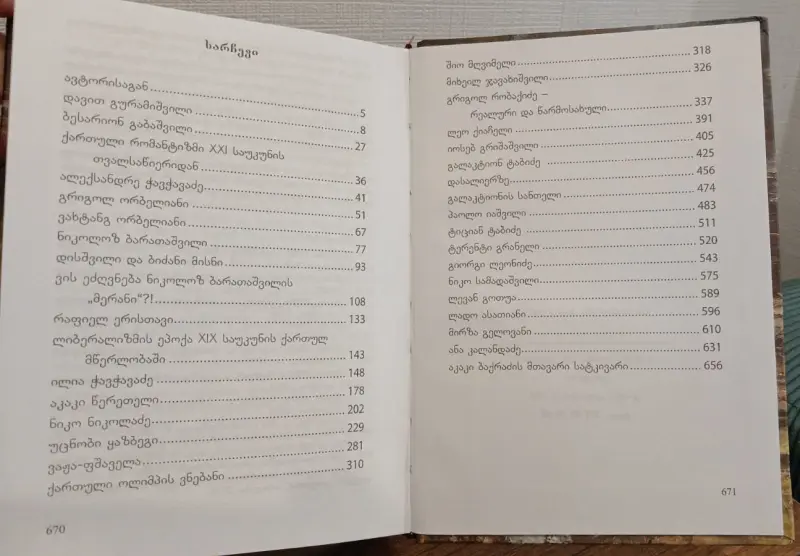 სარჩევი
ავტორისაგან.....5
დავით გურამიშვილი.....8
ბესარიონ გაბაშვილი.....27
ქართული რომანტიზმი XXI საუკუნის
თვალსაწიერიდან.....36
ალექსანდრე ჭავჭავაძე.....41
გრიგოლ ორბელიანი.....51
ვახტანგ ორბელიანი.....67
ნიკოლოზ ბარათაშვილი.....77
დისშვილი და ბიძანი მისნი.....93
ვის ეძღვნება ნიკოლოზ ბარათაშვილის
„მერანი“?!.....108
რაფიელ ერისთავი.....133
ლიბერალიზმის ეპოქა XIX საუკუნის ქართულ
მწერლობაში.....143
ილია ჭავჭავაძე.....148
აკაკი წერეთელი.....178
ნიკო ნიკოლაძე.....202
უცნობი ყაზბეგი.....229
ვაჟა-ფშაველა.....281
ქართული ოლიმპის ვნებანი.....310
670
შიო მღვიმელი.....318
მიხეილ ჯავახიშვილი.....326
გრიგოლ რობაქიძე –
რეალური და წარმოსახული.....337
ლეო ქიაჩელი.....391
იოსებ გრიშაშვილი.....405
გალაკტიონ ტაბიძე.....425
დასალიერზე.....456
გალაკტიონის სანთელი.....474
პაოლო იაშვილი.....483
ტიციან ტაბიძე.....511
ტერენტი გრანელი.....520
გიორგი ლეონიძე.....543
ნიკო სამადაშვილი.....575
ლევან გოთუა.....589
ლადო ასათიანი.....596
მირზა გელოვანი.....610
ანა კალანდაძე.....631
აკაკი ბაქრაძის მთავარი სატკივარი.....656
671